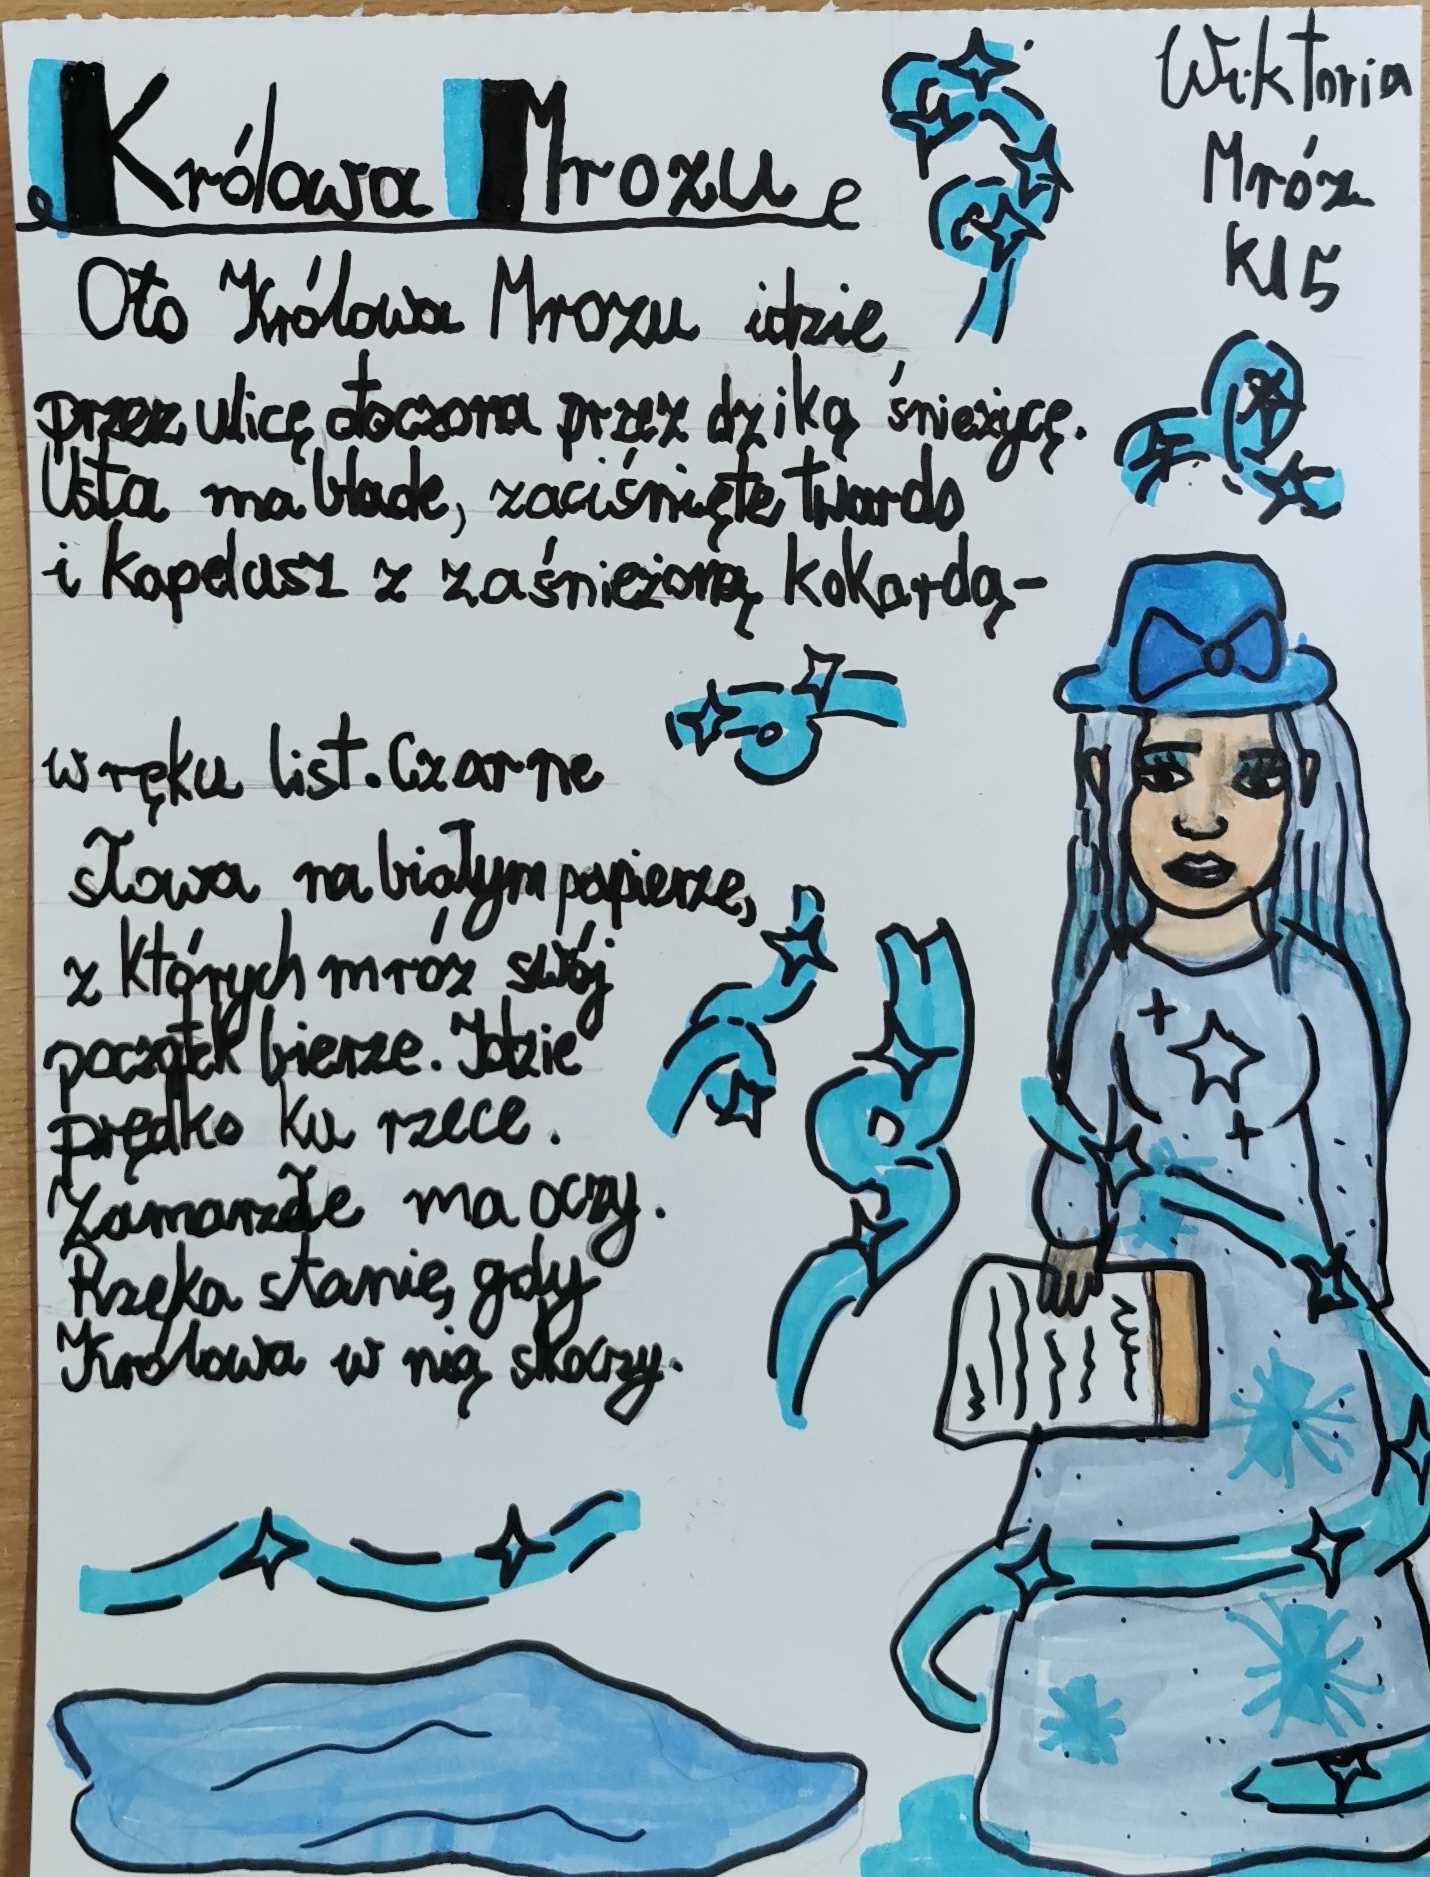 Królowa Mrozu
Wiktoria
Mróz
kl 5
Oto Królowa Mrozu idzie
przez ulicę otoczona przez dziką śnieżycę.
Usta ma blade, zaciśnięte twardo
i kapelusz z zaśnieżoną kokardą-
w ręku list. Czarne
słowa na białym papierze,
z których mróz swój
początek bierze. Idzie
prędko ku rzece.
Zamarzłe ma oczy.
Rzeka stanie, gdy
Królowa w nią skoczy.